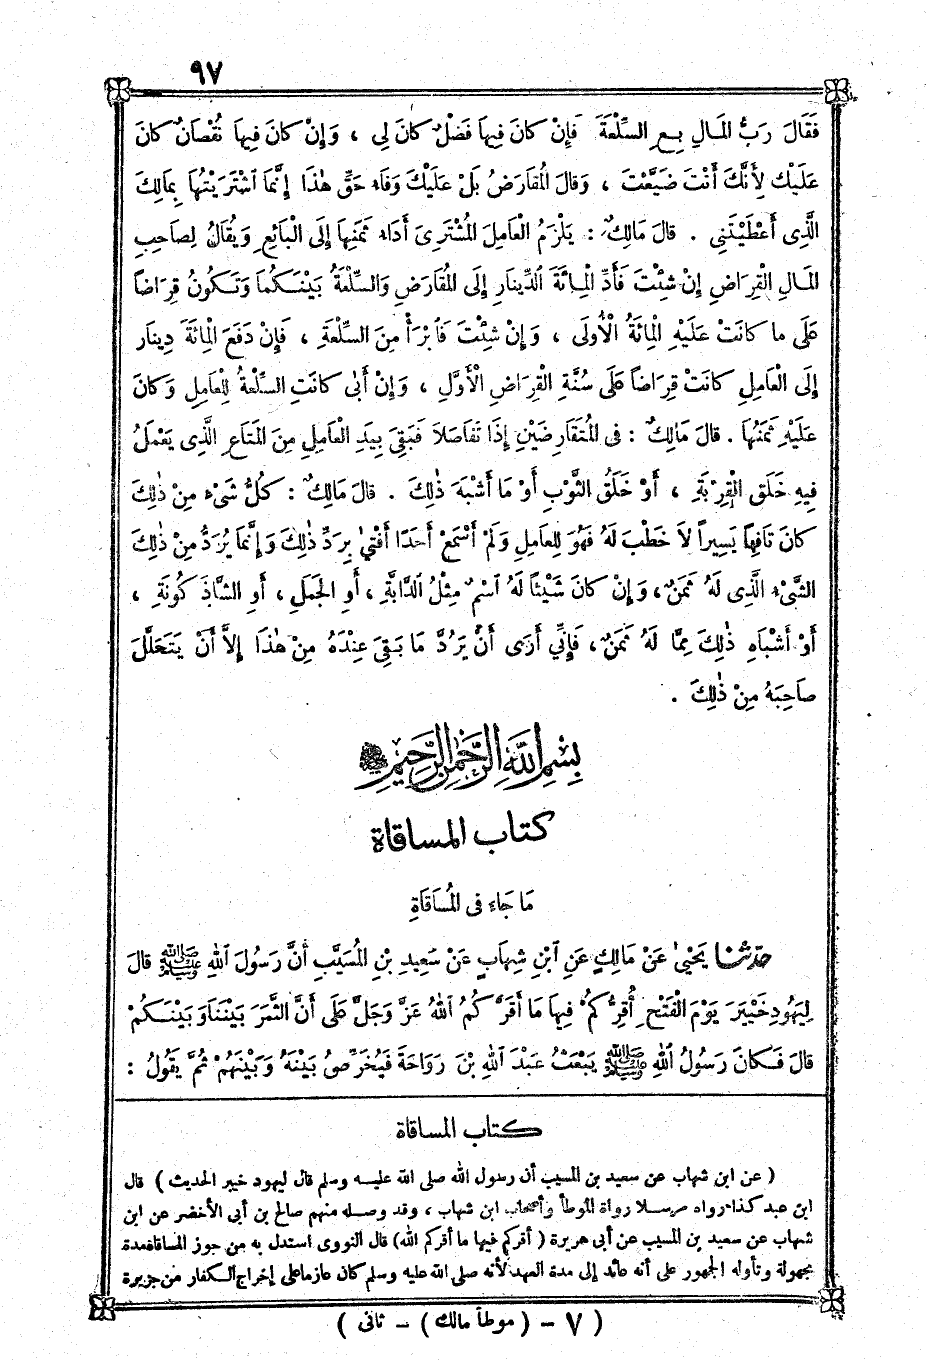 ٩٧
فَقَالَ رَبُّ الْمَالِ بِعِ السِّلْعَةَ فَإِنْ كَانَ فِيهَا فَضْلٌ كَانَ لِي ، وَإِنْ كَانَ فِيهَا نُقْصَانٌ كَانَ
عَلَيْكَ لِأَنَّكَ أَنْتَ ضَيَّعْتَ ، وَقَالَ الْمُقَارَضُ بَلْ عَلَيْكَ وَفَاءُ حَقِّ هٰذَا إِنَّمَا اشْتَرَيْتُهَا بِمَالِكَ
الَّذِى أَعْطَيْتَنِى . قَالَ مَالِكٌ : يَلْزَمُ الْعَامِلَ الْمُشْتَرِىَ أَدَاءُ ثَمَنِهَا إِلَى الْبَائِعِ وَيُقَالُ لِصَاحِبِ
الْمَالِ الْقِرَاضِ إِنْ شِئْتَ فَأَدِّ الْمِائَةَ الدِّينَارِ إِلَى الْمُقَارَضِ وَالسِّلْعَةُ بَيْنَكُمَا وَتَكُونُ قِرَاضًا
عَلَى مَا كَانَتْ عَلَيْهِ الْمِائَةُ الْأُولَى ، وَإِنْ شِئْتَ فَابْرَأْ مِنَ السِّلْعَةِ ، فَإِنْ دَفَعَ الْمِائَةَ دِينَارٍ
إِلَى الْعَامِلِ كَانَتْ قِرَاضاً عَلَى سُنَّةِ الْقِرَاضِ الْأَوَّلِ ، وَإِنْ أَبَى كَانَتِ السِّلْعَةُ لِلْعَامِلِ وَكَانَ
عَلَيْهِ ثَمَنُهَا . قَالَ مَالِكٌ : فِى الْمُتَقَارِضَيْنِ إِذَا تَفَاصَلَا فَبَقِىَ بِيَدِ الْعَامِلِ مِنَ الْمَتَاعِ الَّذِى يَعْمَلُ
فِيهِ خَلَقُ الْقِرْبَةِ ، أَوْ خَلَقُ الثَّوْبِ أَوْ مَا أَشْبَهَ ذٰلِكَ . قَالَ مَالِكٌ : كُلُّ شَىْءٍ مِنْ ذٰلِكَ
كَانَ تَافِهاً يَسِيراً لَا خَطْبَ لَهُ فَهُوَ لِلْعَامِلِ وَلَمْ أَسْمَعْ أَحَدًا أَفْتَى بِرَدِّ ذٰلِكَ وَإِنَّمَا يُرَدُّ مِنْ ذٰلِكَ
الشَّىْءُ الَّذِى لَهُ ثَمَنٌ ، وَإِنْ كَانَ شَيْئًا لَهُ اسْمٌ مِثْلُ الدَّابَّةِ ، أَوِ الْجَمَلِ ، أَوِ الشَّاذَ كُونَةِ ،
أَوْ أَشْبَاهِ ذٰلِكَ مِمَّا لَهُ ثَمَنٌ ، فَإِنِّي أَرَى أَنْ يَرُدَّ مَا بَقِىَ عِنْدَهُ مِنْ هٰذَا إِلَّا أَنْ يَتَحَلَّلَ
صَاحِبَهُ مِنْ ذٰلِكَ .
بِسْمِ اللَّهِ الرَّحْمٰنِ الرَّحِيمِ
كتاب المساقاة
مَا جَاءَ فِى الْمُسَاقَاةِ
حدثنا يَحْيَى عَنْ مَالِكٍ عَنِ ابْنِ شِهَابٍ عَنْ سَعِيدِ بْنِ الْمُسَيَّبِ أَنَّ رَسُولَ اللهِ ﷺ قَالَ
لِيَهُودِ خَيْبَرَ يَوْمَ الْفَتْحِ أُقِرُّكُمْ فِيهَا مَا أَقَرَّكُمُ اللهُ عَزَّ وَجَلَّ عَلَى أَنَّ الثَّمَرَ بَيْنَنَا وَبَيْنَكُمْ
قَالَ فَكَانَ رَسُولُ اللهِ ﷺ يَبْعَثُ عَبْدَ اللهِ بْنَ رَوَاحَةَ فَيَخْرُصُ بَيْنَهُ وَبَيْنَهُمْ ثُمَّ يَقُولُ :
كتاب المساقاة
( عن ابن شهاب عن سعيد بن المسيب أن رسول الله صلى الله عليه وسلم قال ليهود خيبر الحديث ) قال
ابن عبد كذا رواه مرسلا رواة الموطأ وأصحاب ابن شهاب ، وقد وصله منهم صالح بن أبى الأخضر عن ابن
شهاب عن سعيد بن المسيب عن أبى هريرة ( أقركم فيها ما أقركم الله) قال النووى استدل به من جوز المساقاة مدة
مجهولة وتأوله الجمهور على أنه عائد إلى مدة العهد لأنه صلى الله عليه وسلم كان عازما على إخراج الكفار من جزيرة
( ٧ - ( موطأ مالك ) - ثانى )